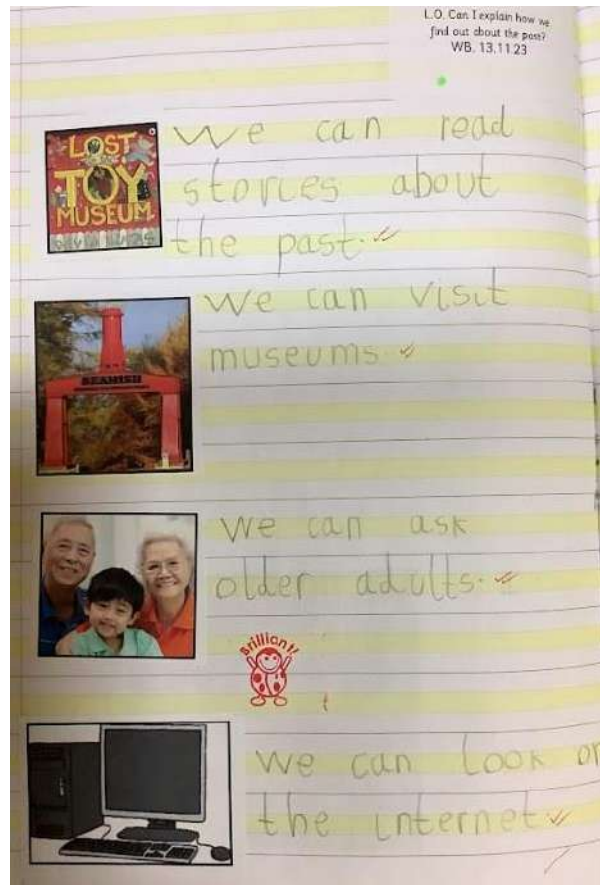 L.O. Can I explain how we
find out about the past?
WB. 13.11.23
LOST
TOY
MUSEUM
We can read
stories about
the past.
BEAMISH
We can visit
museums
We can ask
older adults.
Brilliant!
We can look on
the internet